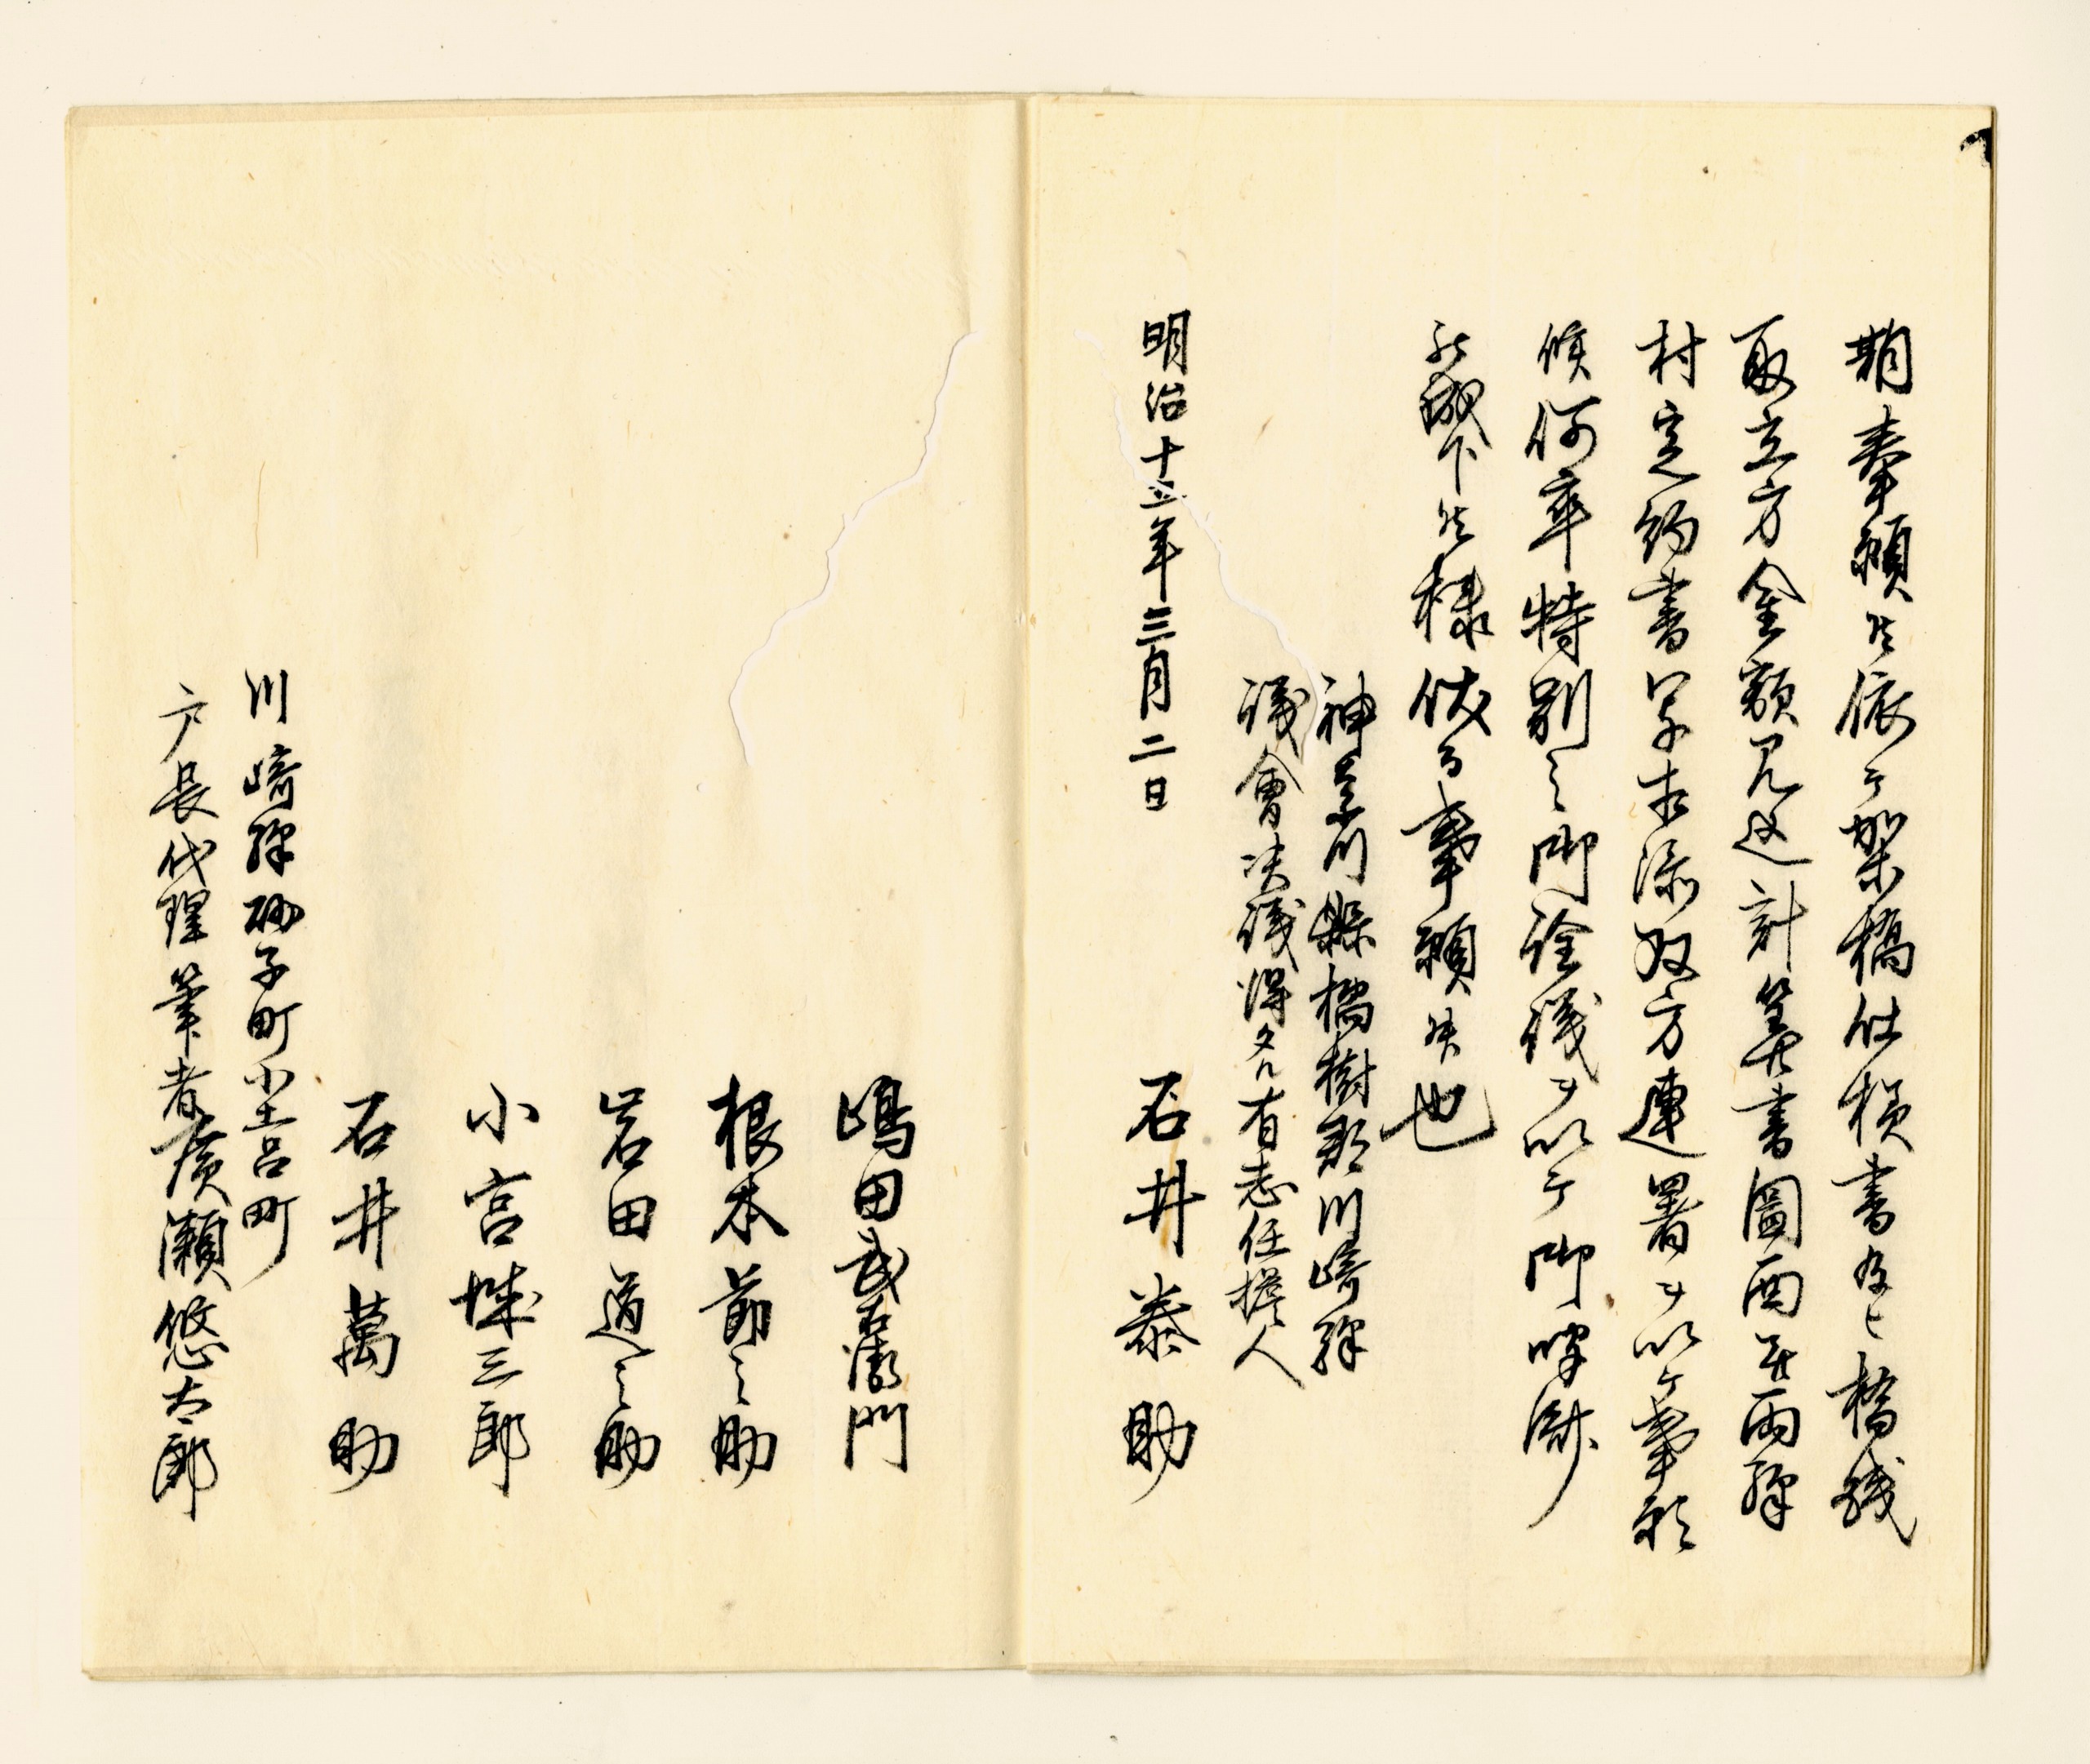 期奉願候依テ架橋仕様書及ヒ橋銭
取立方金額見込計算書圖面并両駅
村定約書写相添双方連署ヲ以テ奉願
候何卒特別之御詮議ヲ以テ御聴済
被成下候様伏而奉願候也
神奈川縣橘樹郡川崎駅
議會决議得タル有志任撰人
明治十三年三月二日
石井泰助
嶋田武右衛門
根本節之助
岩田道之助
小宮城三郎
石井萬助
川崎駅砂子町小土呂町
戸長代理筆者廣瀬悠太郎